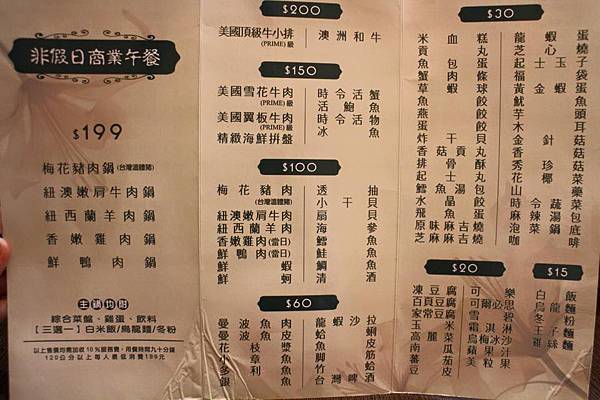 非假日商業午餐
$199
梅花豬肉鍋(台灣溫體豬)
紐澳嫩肩牛肉鍋
紐西蘭羊肉鍋
香嫩雞肉鍋
鮮鴨肉鍋
主鍋均附
綜合菜盤、雞蛋、飲料
【三選一】白米飯/烏龍麵/冬粉
以上售價均需加收10%服務費,用餐時間九十分鐘
120公分以上每人最低消費199元
$200
美國頂級牛小排
(PRIME)級
澳洲和牛
$150
美國雪花牛肉
(PRIME)級
美國翼板牛肉
(PRIME)級
精緻海鮮拼盤
時令活蟹
活鮑魚
時令活物
冰魚
$100
梅花豬肉
(台灣溫體豬)
紐澳嫩肩牛肉
紐西蘭羊肉
香嫩雞肉(當日)
鮮鴨肉(當日)
鮮蝦
鮮蚵
透抽
小干貝
扇貝
海參
鱈魚
鮭魚
鯛魚
清酒
$60
曼波魚肉
曼波魚皮
花枝漿
多利魚
銀鱈魚
龍蝦沙拉
蛤蜊
魚皮
腳筋
竹蛤
台灣啤酒
$30
米血糕
貢丸
魚包蛋
蟹肉條
草蝦球
魚餃
燕餃
蛋餃
炸干貝
香菇貢丸
排骨酥
起士包
鱈魚湯包
水晶餃
飛魚蛋
原味麻吉燒
芝麻麻吉燒
龍蝦蛋
芝心燒
起士玉子
福袋
黃金蝦蛋
魷魚
芋頭
木耳
金針菇
香菇
秀珍菇
椰菜
花
山藥
時令蔬菜
麻辣湯底
泡菜鍋
咖啡
$20
凍豆腐
百頁豆腐
家常豆腐
玉米
高麗菜
南瓜
蕃茄
豆皮
可樂
可爾必思
雪碧
霜淇淋
烏梅冰沙
蘋果汁
美粒果
$15
白飯
烏龍麵
冬粉
王子麵
雞絲麵